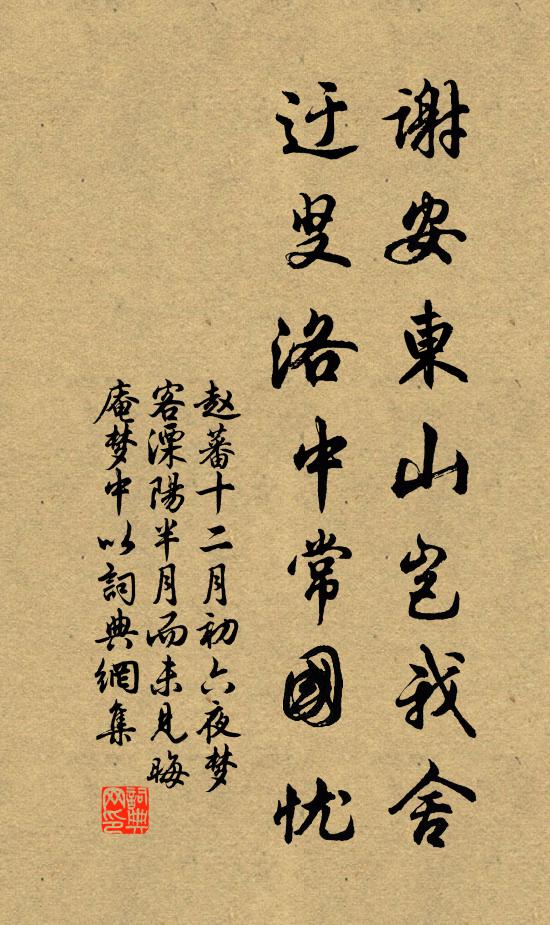 谢安東山岂我舍
迂叟洛中常國忧
赵蕃十二月初六夜梦
客溧陽半月而未見晦
庵梦中以詞典網集
詞典
网印